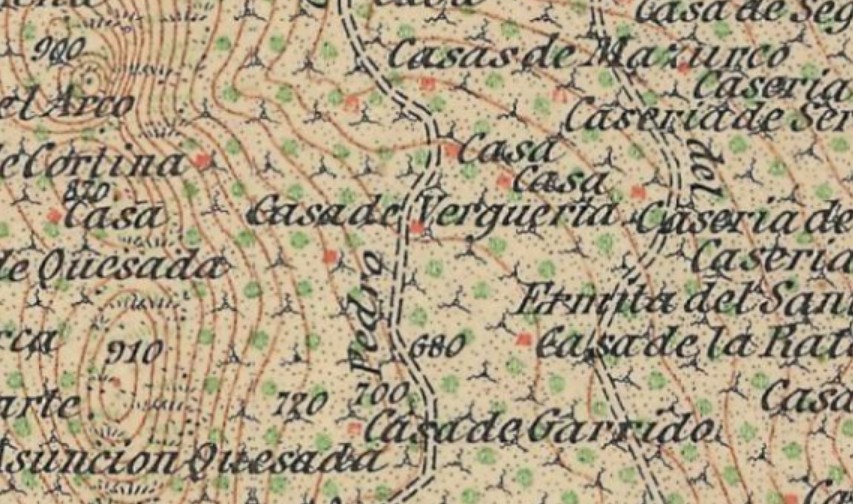 Casa de Seg
900
Casas de Mazurco
Caseria
el Arco
Caseria de Ser
del
Casa
e Cortina
Casa
870
Casa
Casa de Vergueria
Caseria de
de Quesada
Caseria
Pedro
Ermita del San
rca
910
680
Casa de la Rat
720
700
arte
Casa
Casa de Garrido
Asuncion Quesada